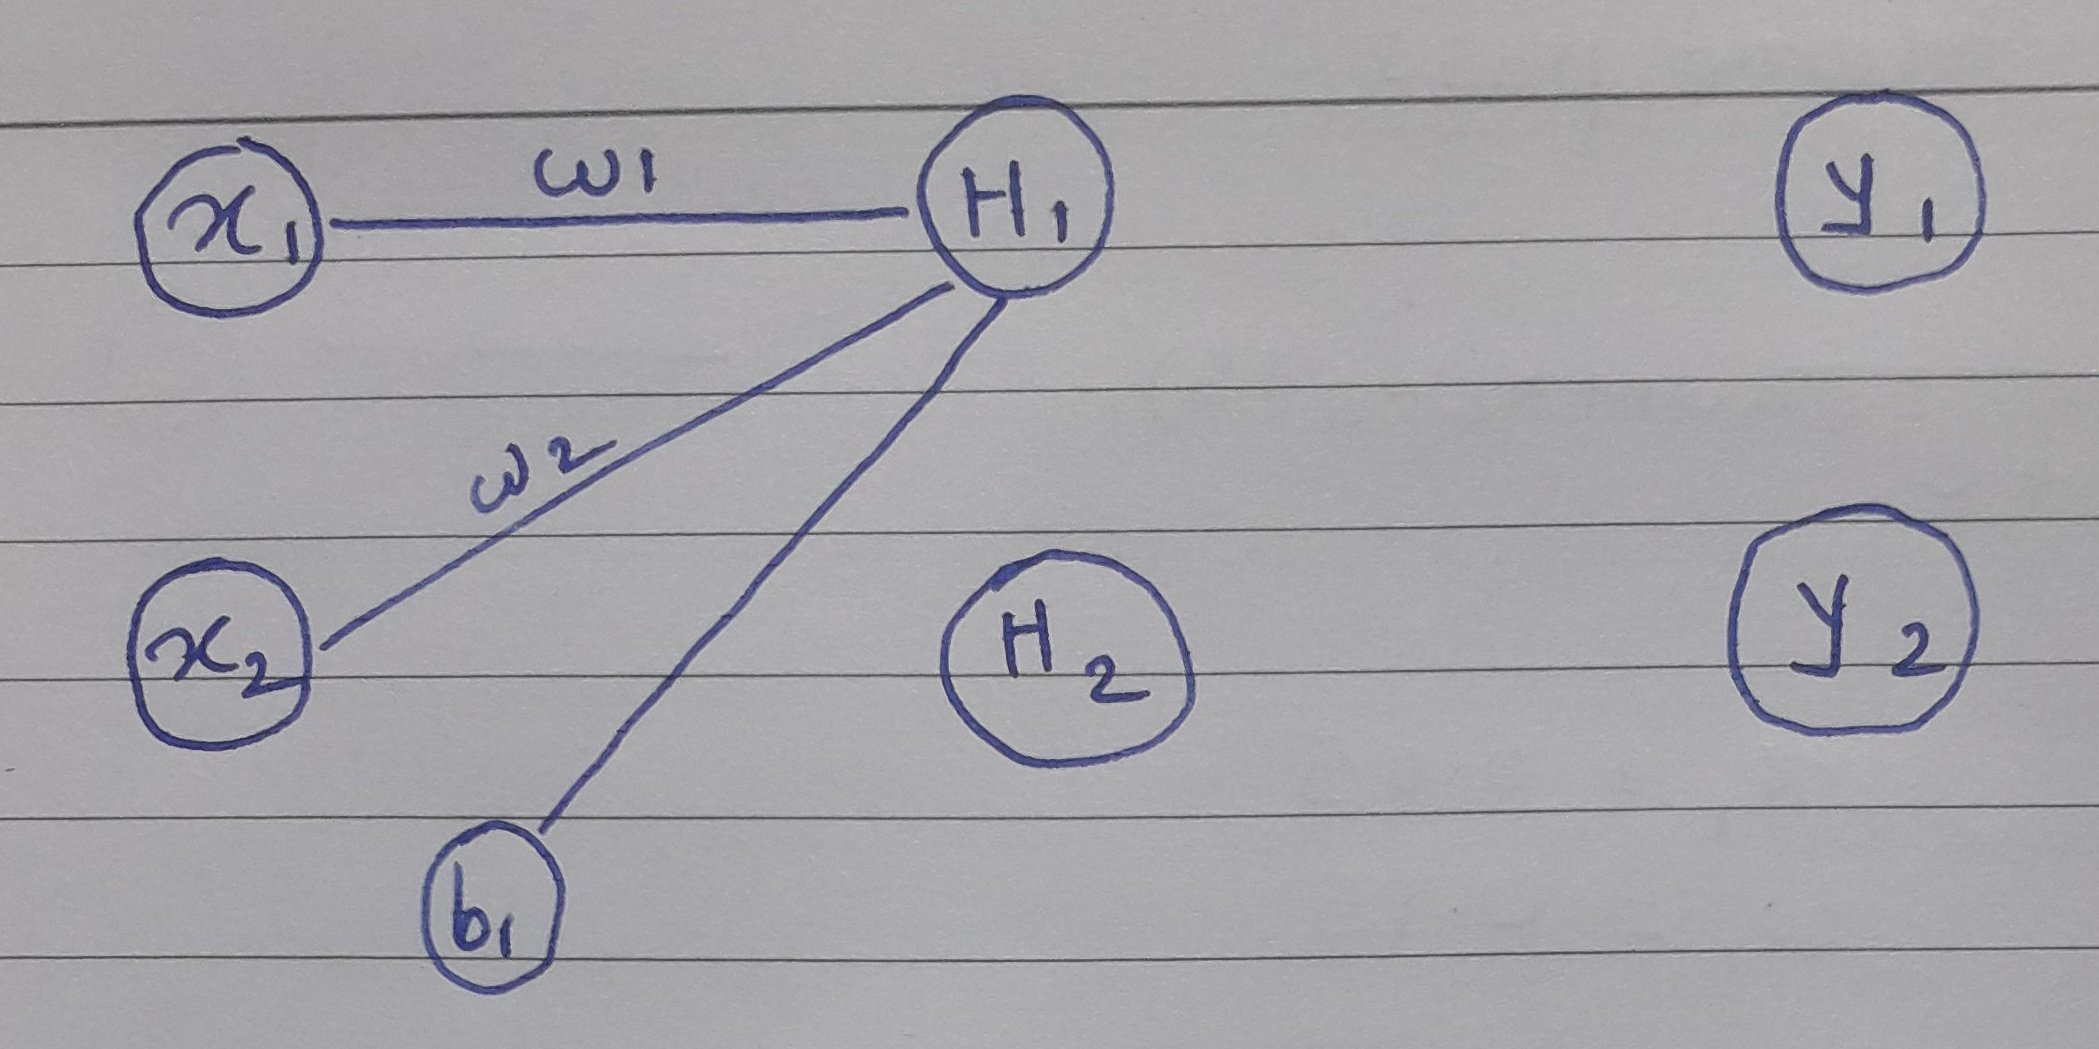 x₁ ω1 H₁ y₁
ω2
x₂ H₂ y₂
b₁